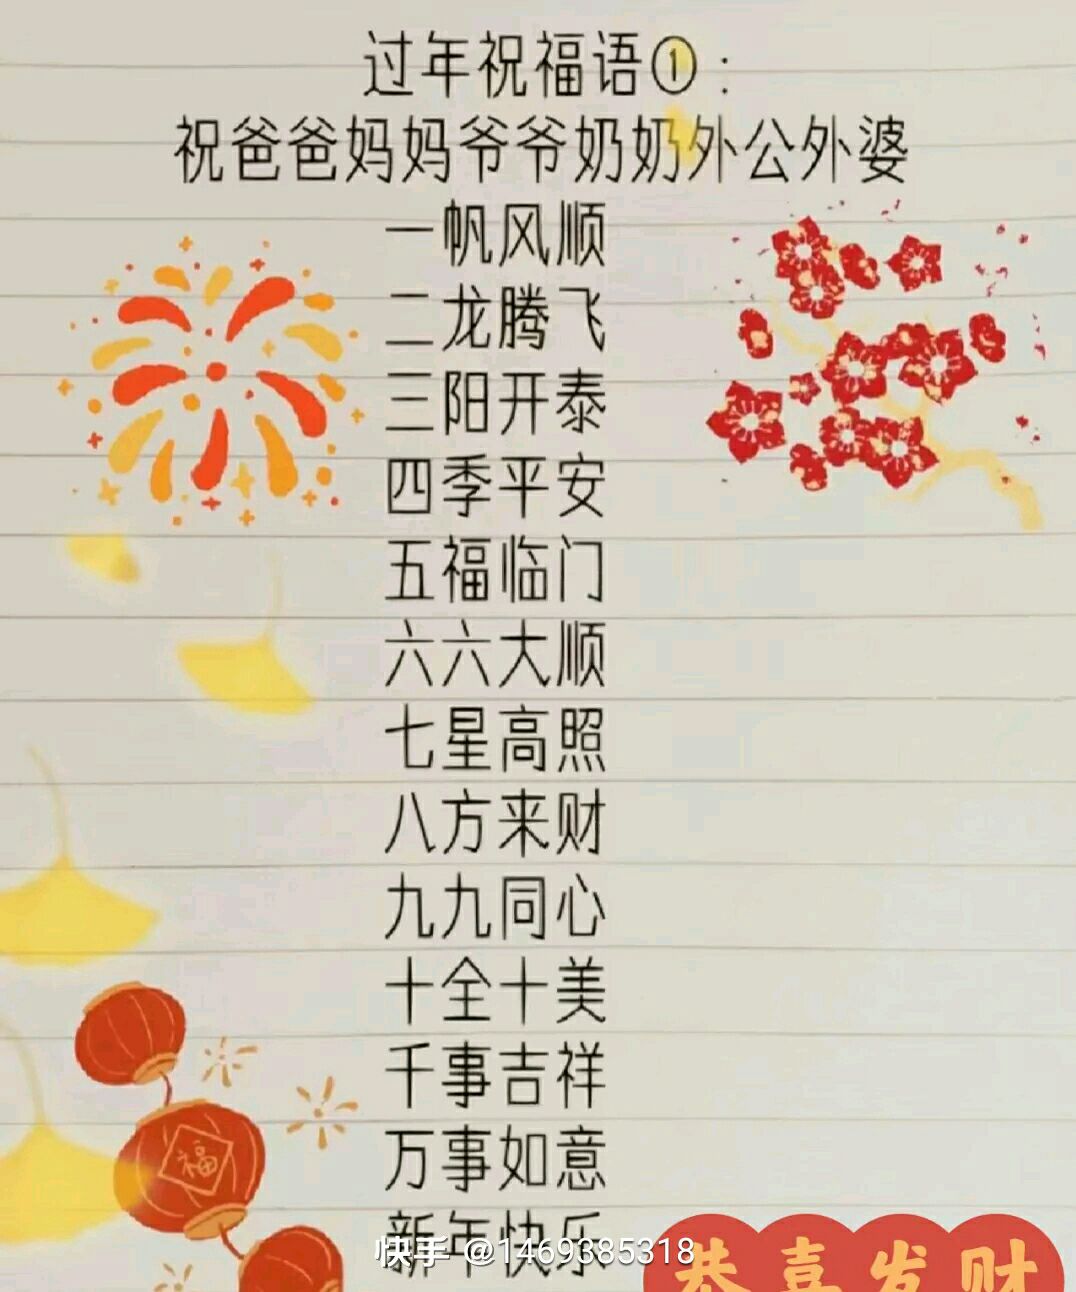 过年祝福语①：
祝爸爸妈妈爷爷奶奶外公外婆
一帆风顺
二龙腾飞
三阳开泰
四季平安
五福临门
六六大顺
七星高照
八方来财
九九同心
十全十美
千事吉祥
万事如意
福
新年快乐
快手 @1469385318
恭喜发财